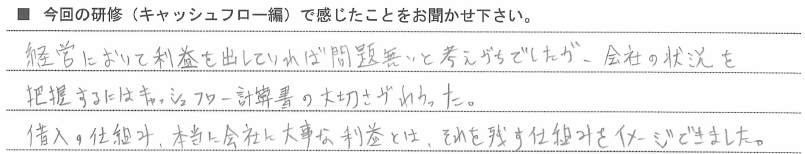 ■ 今回の研修（キャッシュフロー編）で感じたことをお聞かせ下さい。
経営において利益を出していれば問題無いと考えがちでしたが、会社の状況を
把握するにはキャッシュフロー計算書の大切さがわかった。
借入の仕組み、本当に会社に大事な利益とは、それを残す仕組みをイメージできました。